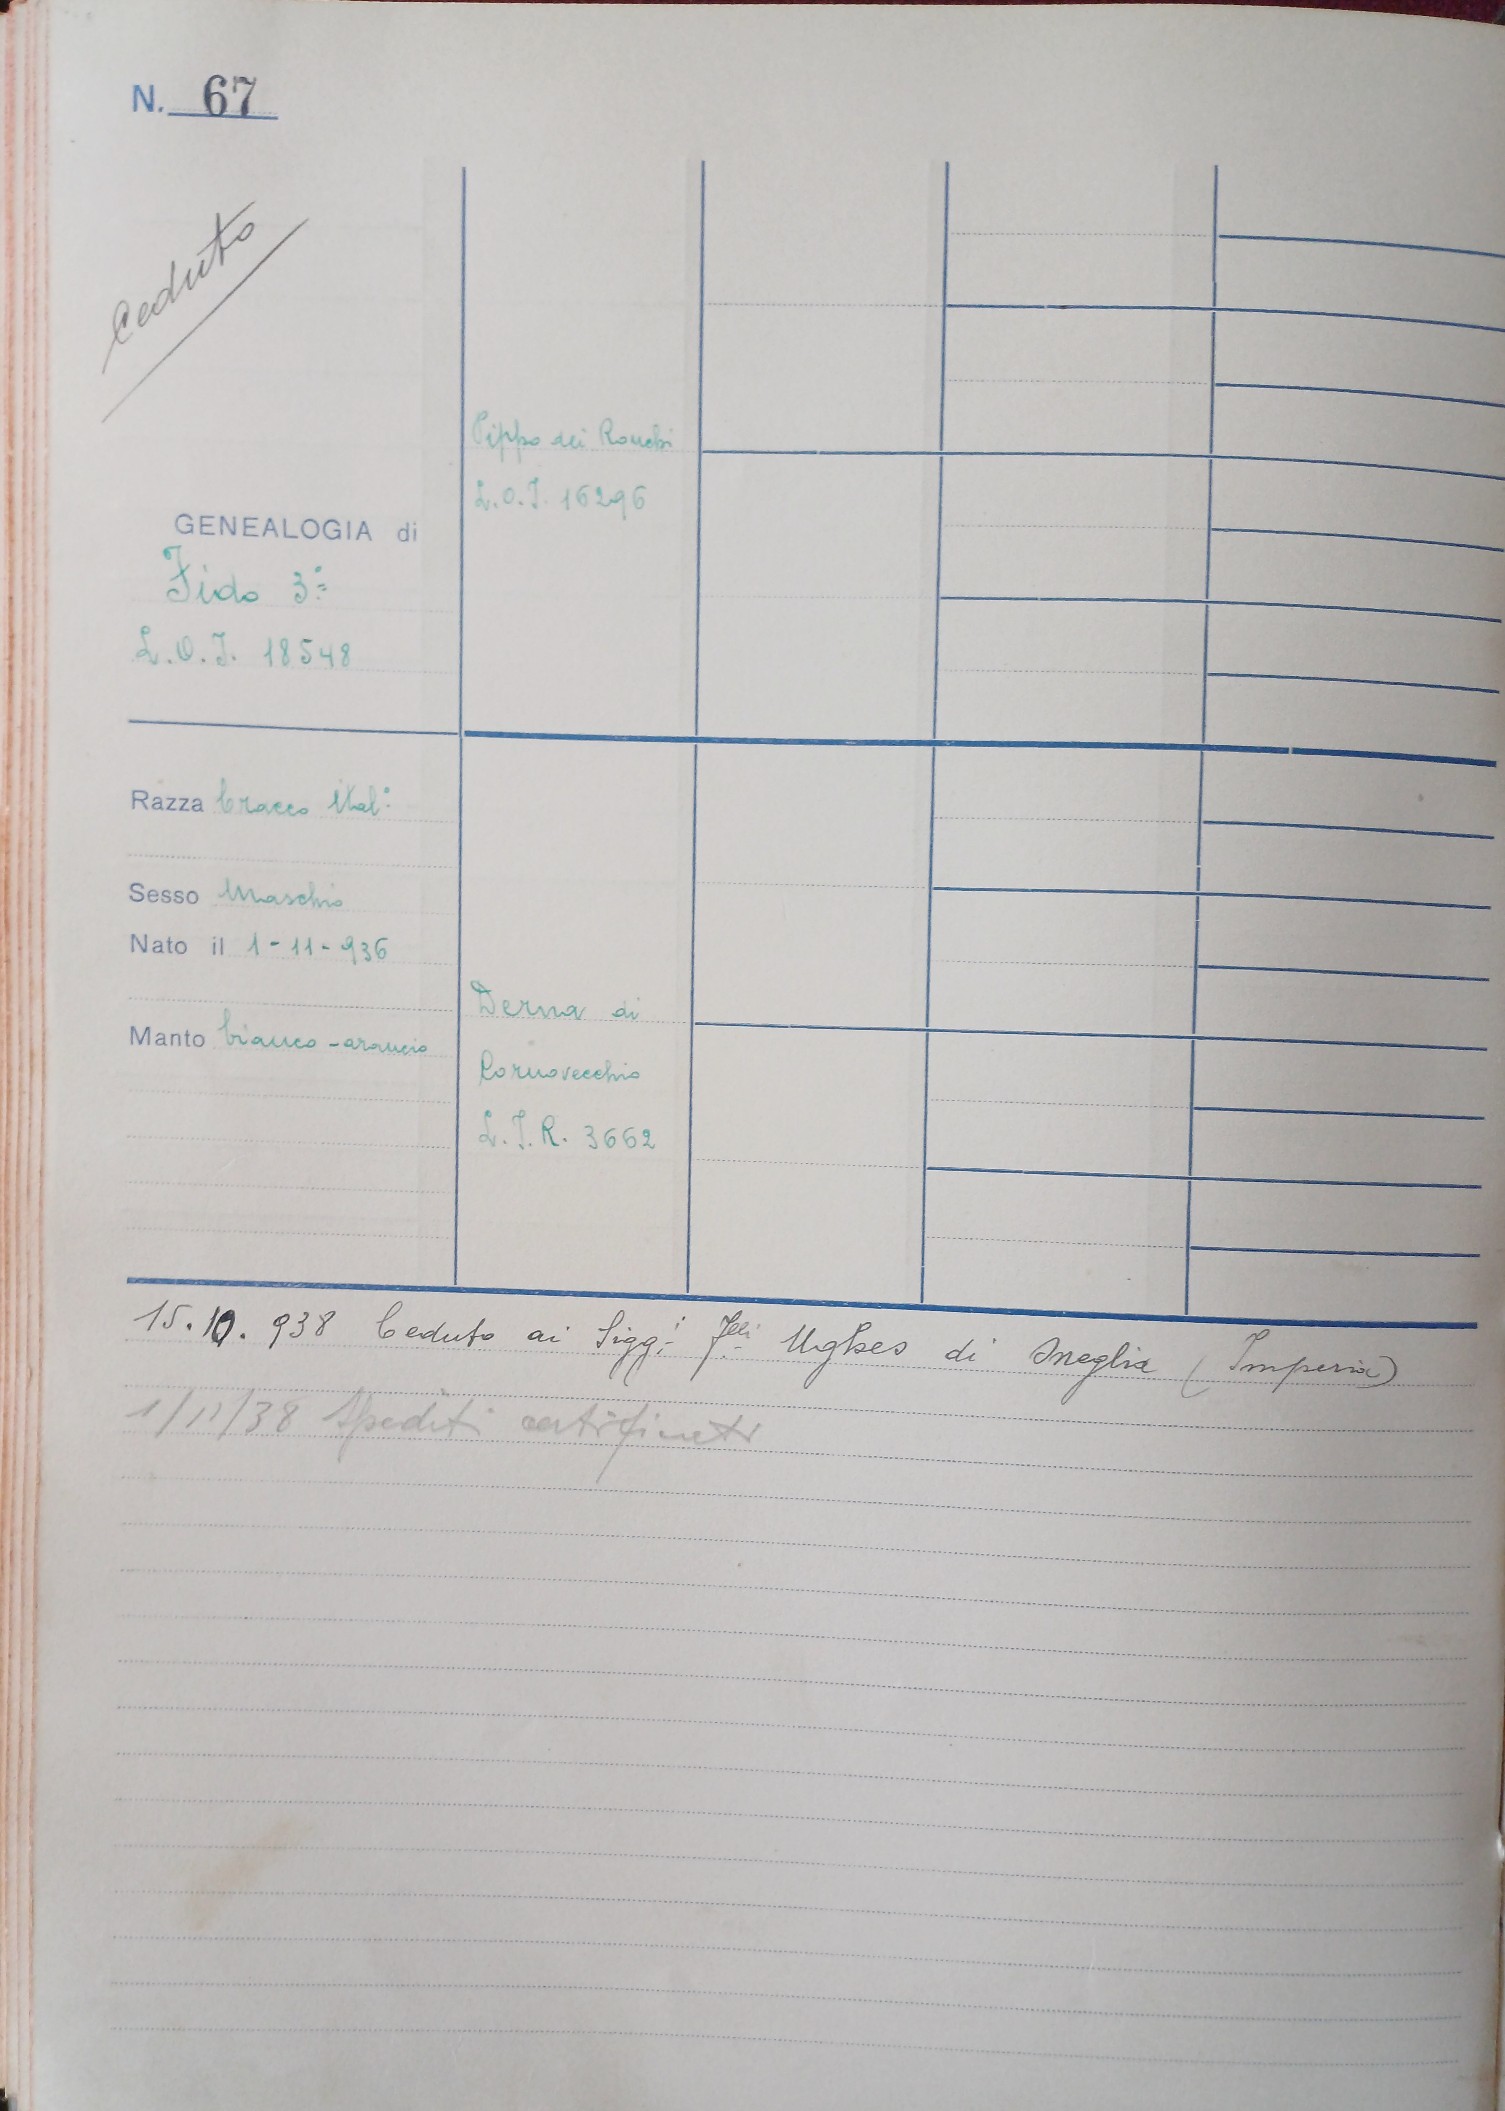 N. 67
Ceduto
Pippo dei Ronchi
L.O.I. 16296
GENEALOGIA di
Fido 3°
L.O.I. 18548
Razza bracco Ital°
Sesso Maschio
Nato il 1-11-936
Manto bianco-arancio
Derna di
Cornovecchio
L.I.R. 3662
15.10.938 Ceduto ai Sigg.i F.lli di Oneglia (Imperia)
1/11/38 Spediti certificati